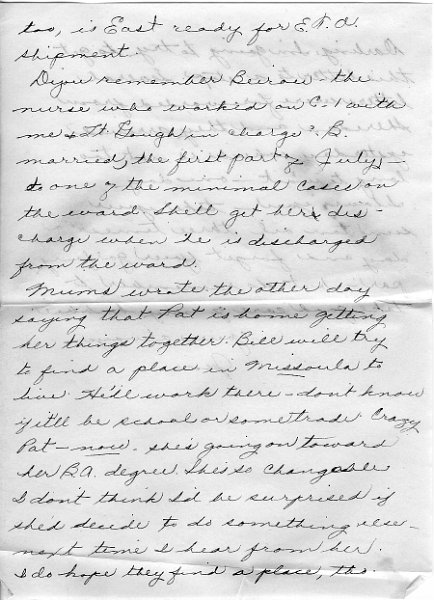 too, is East ready for E.T.O.
shipment.
Dyou remember Beirow the
nurse who worked on C-1 with
me & Lt. Gough in charge? B.
married, the first part of July,-
to one of the minimal cases on
the ward. She'll get her dis-
charge when he is discharged
from the ward.
Mums wrote the other day
saying that Pat is home getting
her things together. Bill will try
to find a place in Missoula to
live. He'll work there - dont know
if it'll be school or some trade. Crazy
Pat - now she's going on toward
her B.A. degree. She's so changeable
I don't think I'd be surprised if
she'd decide to do something else -
next time I hear from her.
I do hope they find a place, tho.